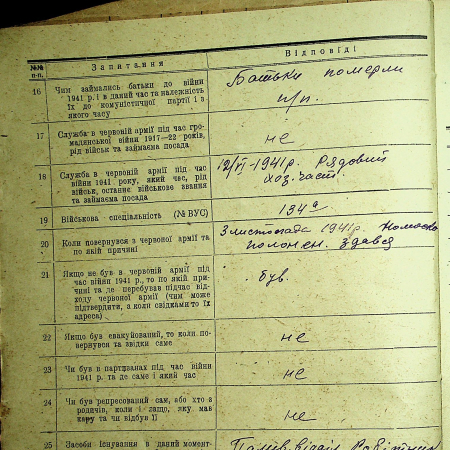 №№ п-п. Запитання Відповіді
16 Чим займались батьки до війни
1941 р. і в даний час та належність
їх до комуністичної партії і з
якого часу
Батьки померли
п/п.
17 Служба в червоній армії під час гро-
мадянської війни 1917—22 років,
рід військ та займаєма посада
не
18 Служба в червоній армії під час
війни 1941 року, який час, рід
військ, останнє військове звання
та займаєма посада
12/VI-1941р. Рядовий
хоз. част.
19 Військова спеціальність (№ ВУС) 134а
20 Коли повернувся з червоної армії та
по якій причині
3 листопада 1941р.
полонен. здався
21 Якщо не був в червоній армії під
час війни 1941 р., то по якій при-
чині та де перебував підчас від-
ходу червоної армії (чим може
підтвердити, а коли свідками то їх
адреса)
був.
22 Якщо був евакуйований, то коли по-
вернувся та звідки саме
не
23 Чи був в партизанах під час війни
1941 р. та де саме і який час
не
24 Чи був репресований сам, або хто з
родичів, коли і защо, яку мав
кару та чи відбув її
не
25 Засоби існування в даний момент